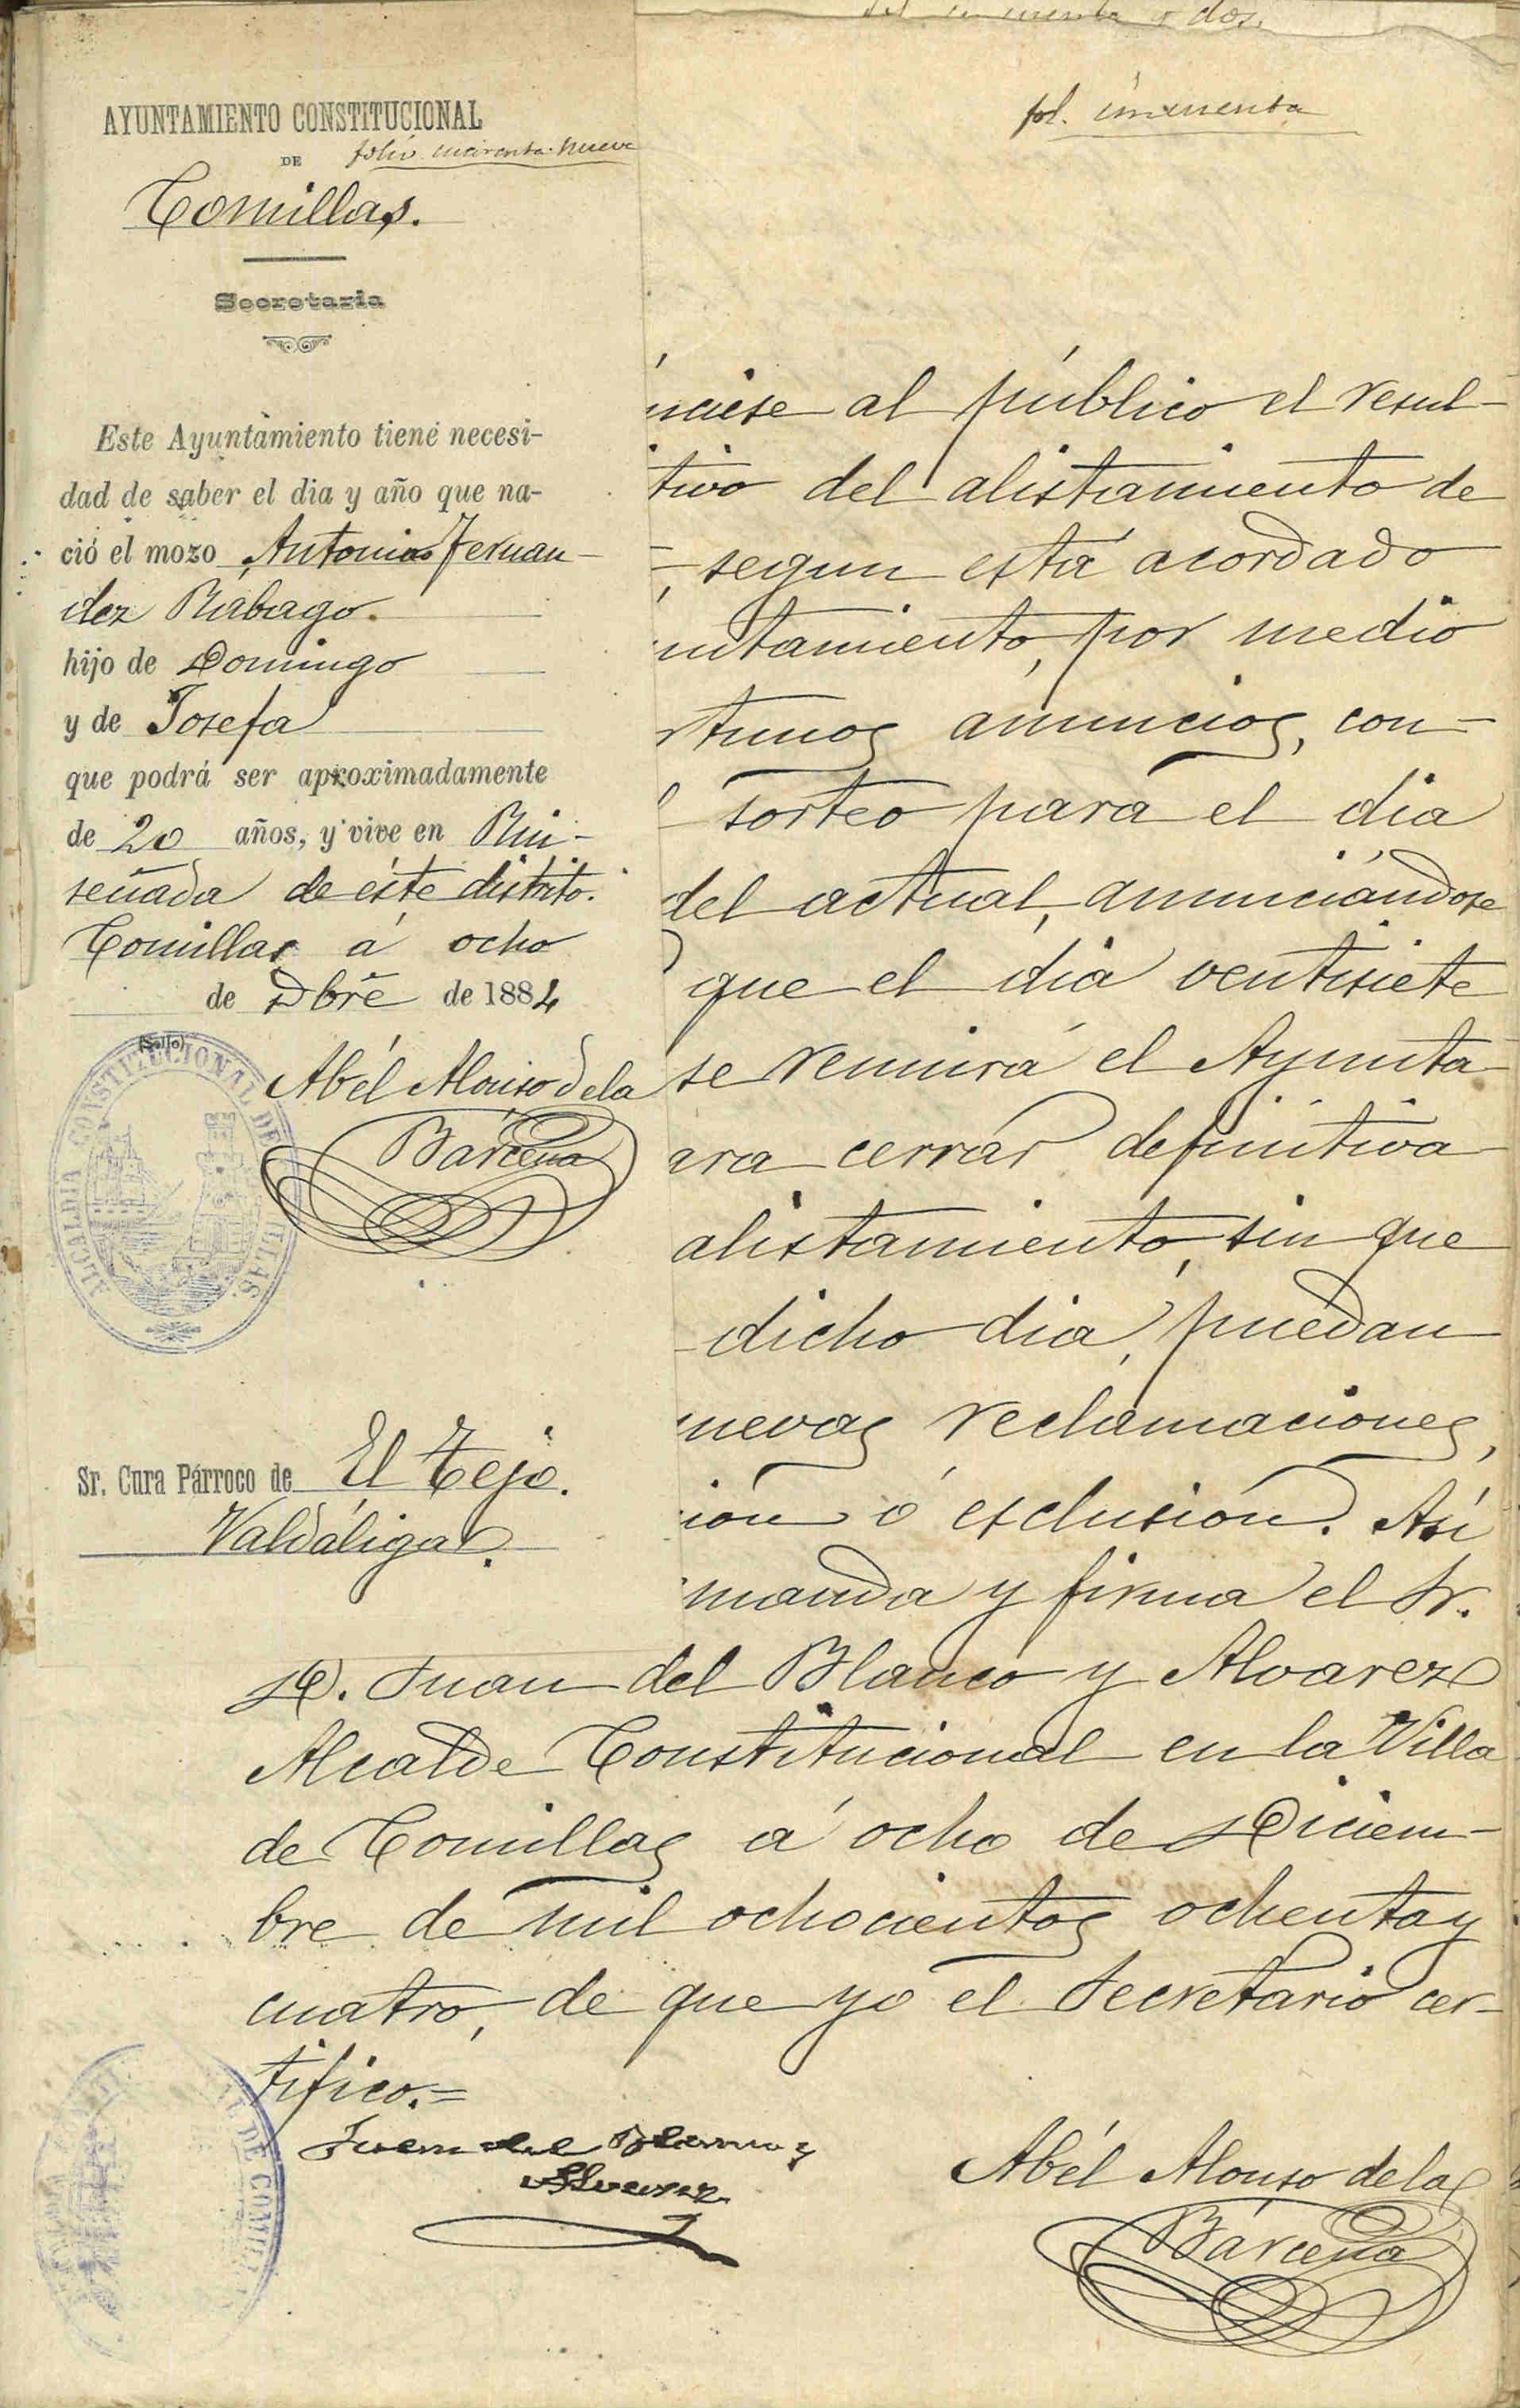 y dos.
fol. cincuenta
AYUNTAMIENTO CONSTITUCIONAL
DE
folio cuarenta nueve
Comillas.
Secretaria
Este Ayuntamiento tiene necesi-
dad de saber el dia y año que na-
ció el mozo Antonio Fernan-
dez Rabago.
hijo de Domingo
y de Josefa
que podrá ser aproximadamente
de 20 años, y vive en Rui-
señada de éste distrito.
Comillas á ocho
de Dbre de 1884
(Sello)
ALCALDIA CONSTITUCIONAL DE COMILLAS
Abél Alonso de la
Bárcena
Sr. Cura Párroco de El Tejo.
Valdáliga.
nciese al público el resul-
tivo del alistamiento de
, segun está acordado
ntamiento, por medio
rtunos anuncios, con-
l sorteo para el dia
del actual, anunciándose
que el dia ventisiete
se reunirá el Ayunta-
ara cerrar definitiva-
alistamiento, sin que
dicho dia, puedan
nuevas reclamaciones,
ión ó esclusión. Así
manda y firma el Sr.
D. Juan del Blanco y Alvarez
Alcalde Constitucional en la Villa
de Comillas á ocho de Diciem-
bre de mil ochocientos ochenta y
cuatro, de que yo el Secretario cer-
tifico.=
Juan del Blanco y
Alvarez
Abél Alonso de la
Bárcena
DE COMILLAS